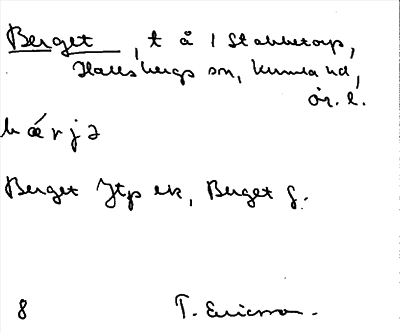 Berget, t å 1 Stabbetorp,
Hallsbergs sn, Kumla hd,
Ör. l.
bǽrjə
Berget Jtp ek, Berget g.
8 T. Ericsson.